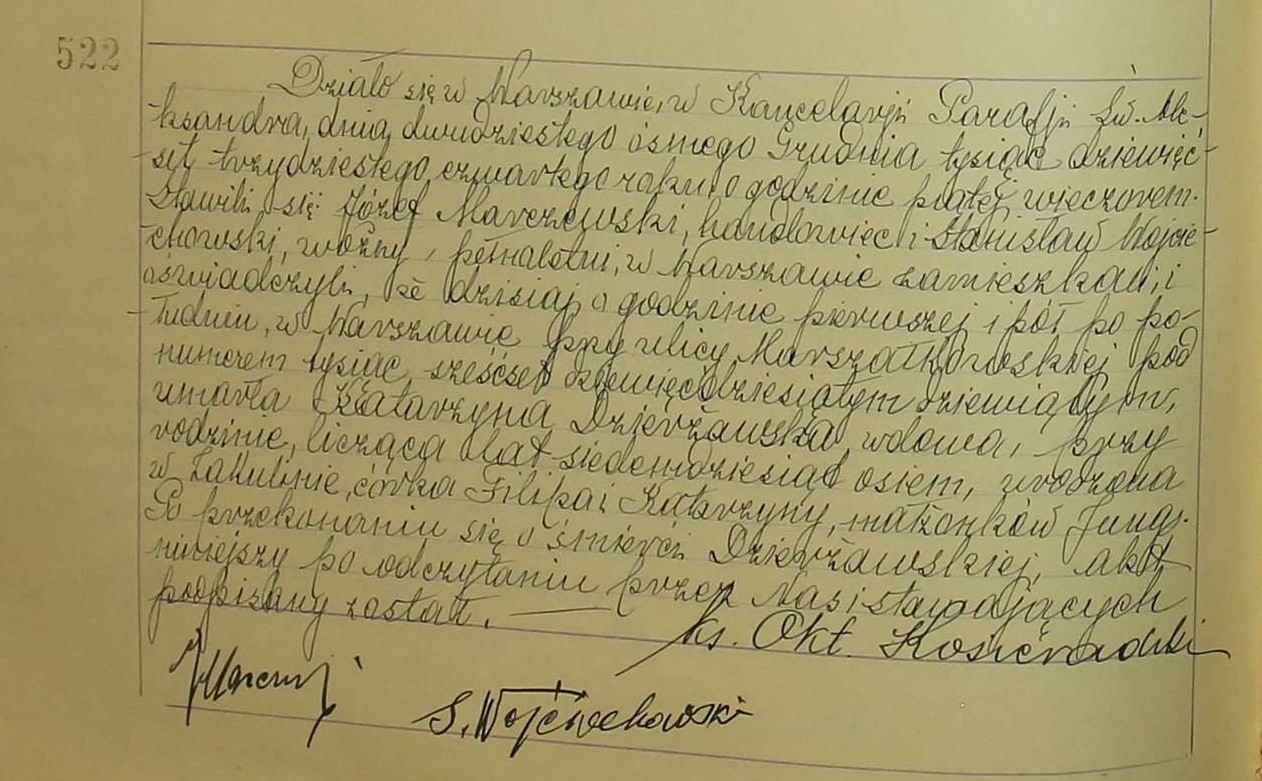 522
Działo się w Warszawie, w Kancelarji Parafji Św. Ale-
ksandra, dnia dwudziestego ósmego Grudnia tysiąc dziewięć-
set trzydziestego czwartego roku, o godzinie piątej wieczorem.
Stawili się Józef Marczewski, handlowiec i Stanisław Wojcie-
chowski, woźny, pełnoletni, w Warszawie zamieszkali, i
oświadczyli, że dzisiaj o godzinie pierwszej i pół po po-
łudniu, w Warszawie przy ulicy Marszałkowskiej pod
numerem tysiąc sześćset dziewięćdziesiątym dziewiątym,
umarła Katarzyna Dzierżawska, wdowa, przy
rodzinie, licząca lat siedemdziesiąt osiem, urodzona
w Zakulinie, córka Filipa i Katarzyny, małżonków Jungi.
Po przekonaniu się o śmierci Dzierżawskiej, akt
niniejszy po odczytaniu przez Nas i stawających
podpisany został.
ks. Okt. Kosieradzki
S. Wojciechowski